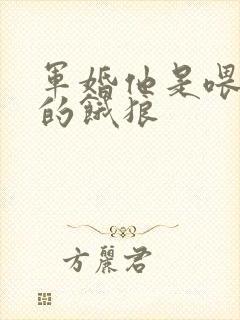 軍婚他是喂
的餓狼
方麗君